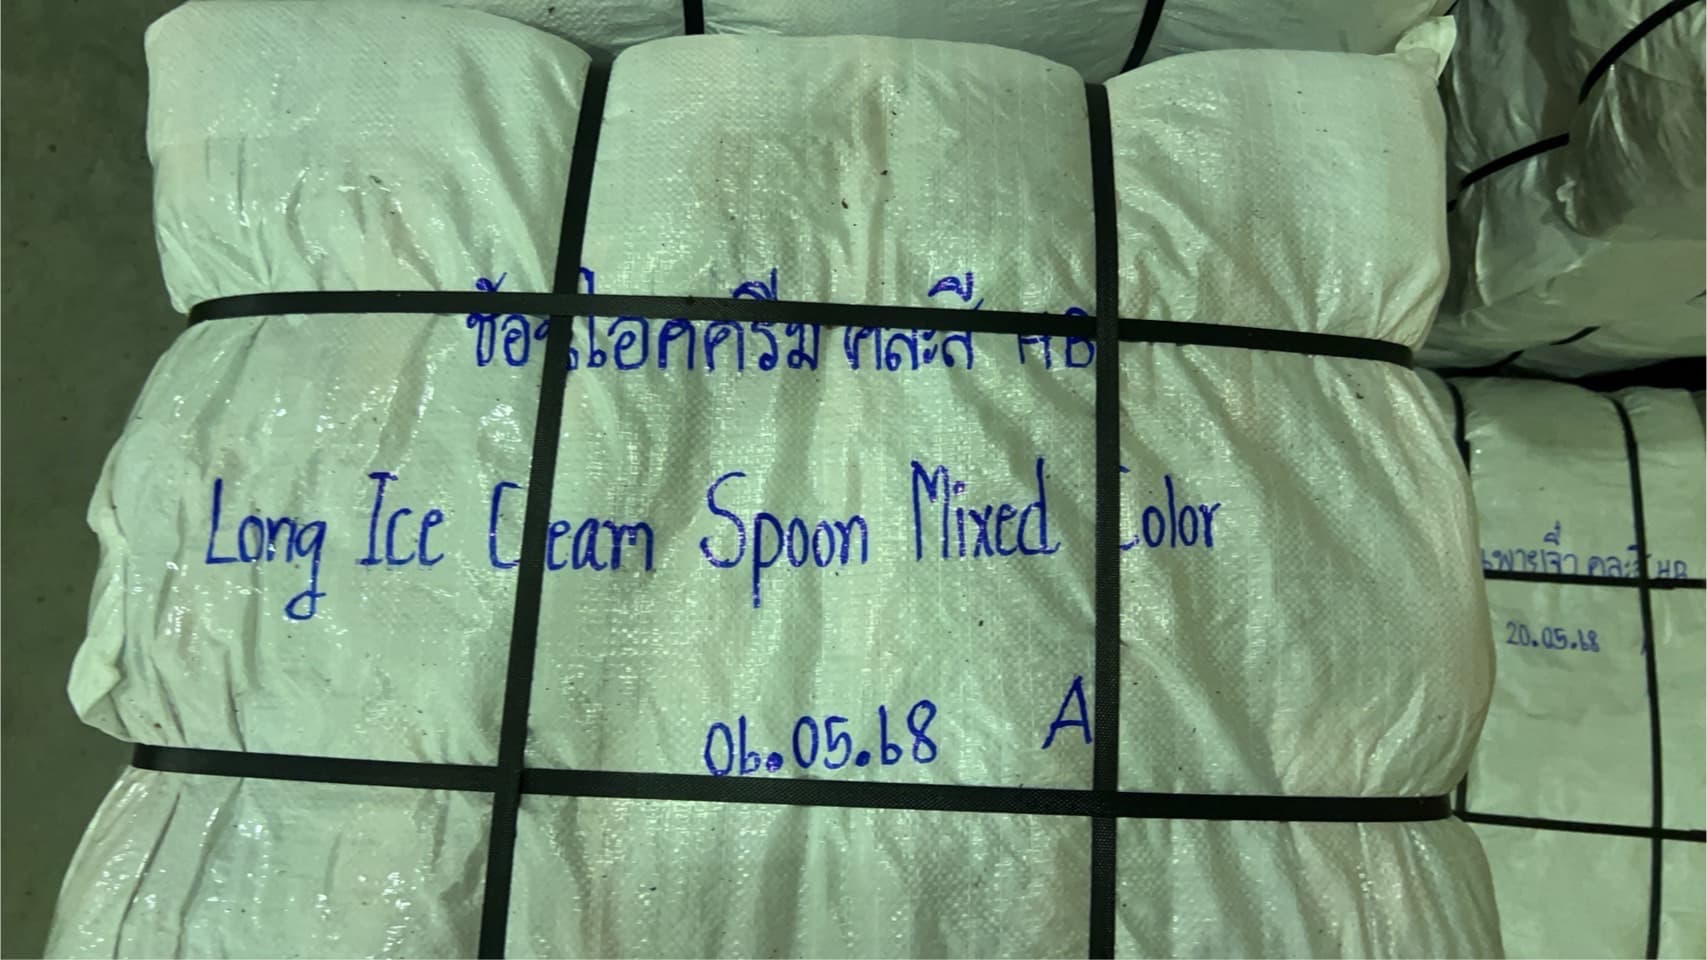 ช้อนไอศครีม คละสี HB
Long Ice Cream Spoon Mixed Color
06.05.68 A
คละสี HB
20.05.68